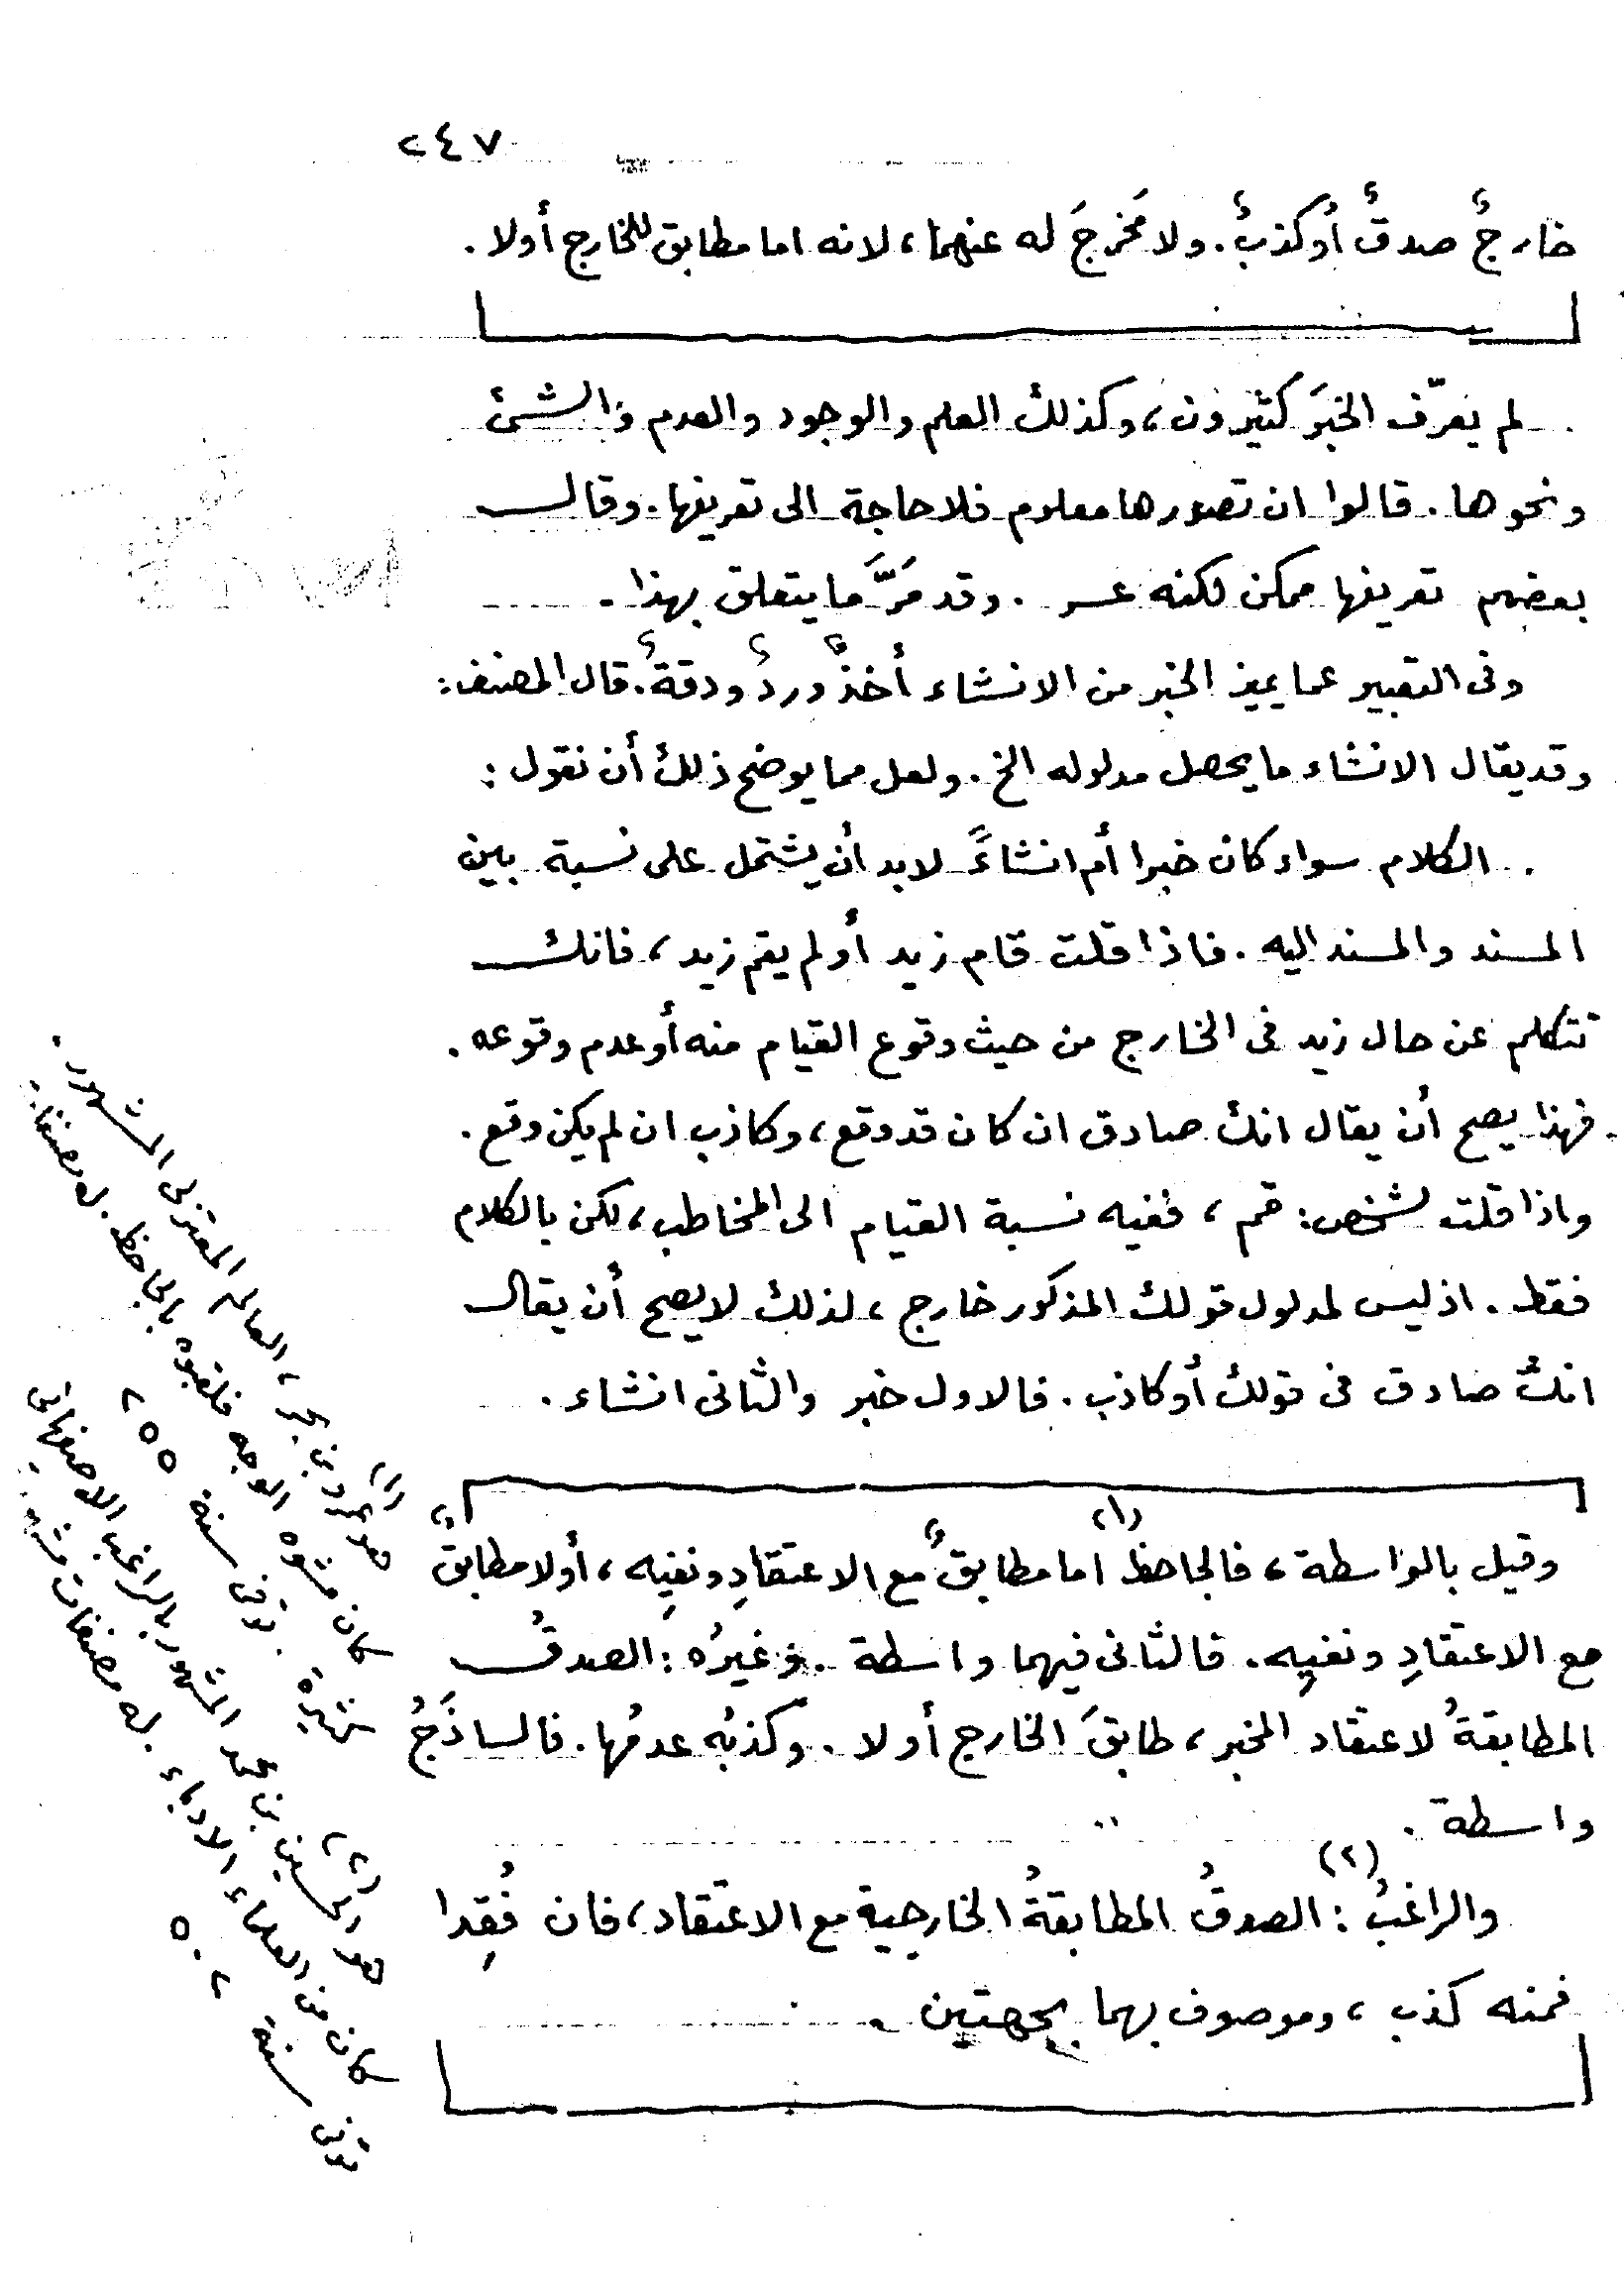 ٢٤٧
خارجٌ صدقٌ أو كذبٌ. ولا مَخرجَ له عنهما، لانه اما مطابق للخارج أولا.
لم يعرّف الخبرَ كثيرون، وكذلك العلم والوجود والعدم والشئ
ونحوها. قالوا ان تصورها معلوم فلا حاجة الى تعريفها. وقال
بعضهم تعريفها ممكن لكنه عسر. وقد مَرَّ ما يتعلق بهذا.
وفى التعبير عما يميز الخبر من الانشاء أخذٌ وردٌ ودقةٌ. قال المصنف:
وقد يقال الانشاء ما يحصل مدلوله الخ. ولعل مما يوضح ذلك أن نقول:
الكلام سواء كان خبرا أم انشاءً لابد أن يشتمل على نسبة بين
المسند والمسند اليه. فاذا قلت قام زيد أو لم يقم زيد، فانك
تتكلم عن حال زيد فى الخارج من حيث وقوع القيام منه أو عدم وقوعه.
فهذا يصح أن يقال انك صادق ان كان قد وقع، وكاذب ان لم يكن وقع.
واذا قلت لشخص: قم، ففيه نسبة القيام الى المخاطب، لكن بالكلام
فقط. اذ ليس لمدلول قولك المذكور خارج، لذلك لا يصح أن يقال
انك صادق فى قولك أو كاذب. فالاول خبر والثانى انشاء.
وقيل بالواسطة، فالجاحظ (١) اما مطابقٌ مع الاعتقادِ ونفيِه، أولا مطابقٌ
مع الاعتقادِ ونفيِه. فالثانى فيهما واسطة. وغيرُه: الصدقُ
المطابقةُ لاعتقاد المخبر، طابقَ الخارج أولا. وكذبُه عدمُها. فالساذَجُ
واسطة.
والراغبُ (٢): الصدقُ المطابقةُ الخارجية مع الاعتقاد، فان فُقِدا
فمنه كذب، وموصوف بهما بجهتين.
(١)
هو عمرو بن بحر، العالم المعتزلى المشهور.
كان مشوه الوجه فلقبوه بالجاحظ. له مصنفات
كثيرة. توفى سنة ٢٥٥
(٢)
هو الحسين بن محمد المشهور بالراغب الاصفهانى
كان من العلماء الادباء. له مصنفات
توفى سنة ٥٠٢